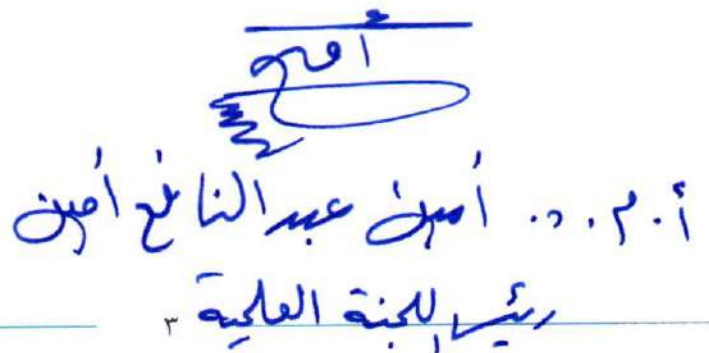 أمين
أ.م.د. أمين عبد النافع أمين
رئيس اللجنة العلمية
٣